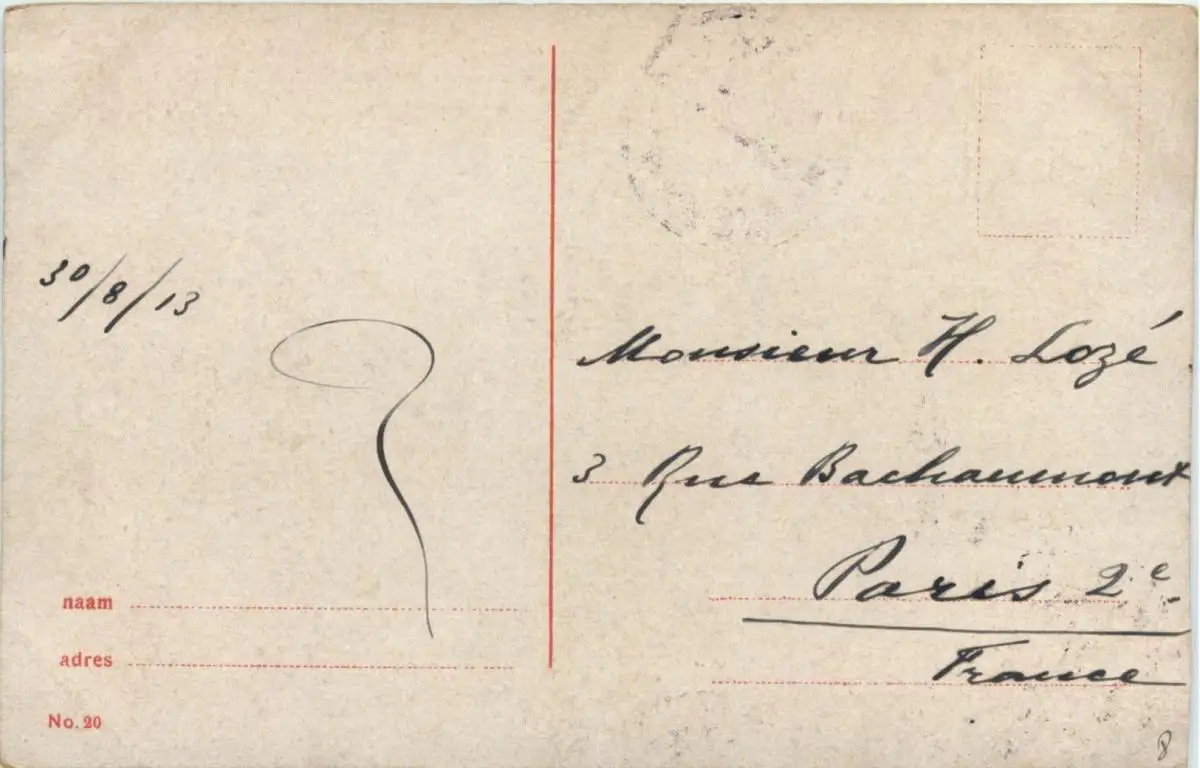 30/8/13
Monsieur H. Lozé
3 Rue Bachaumont
Paris 2e.
France
naam
adres
No. 20
8